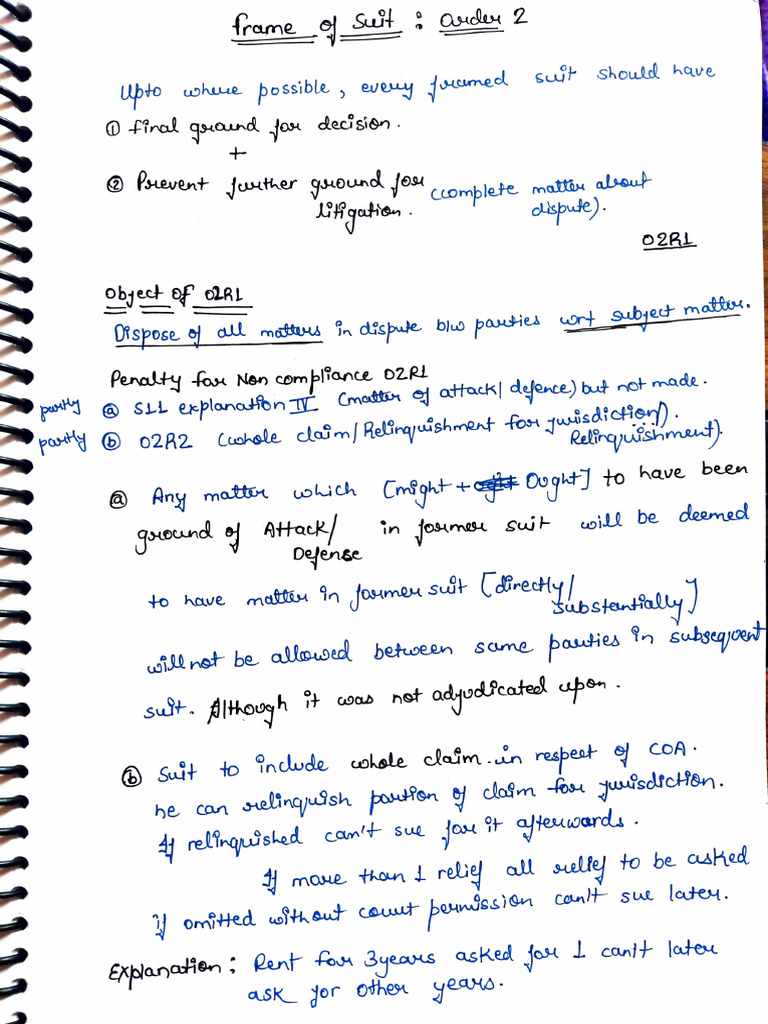 Frame of Suit : Order 2
Upto where possible, every framed suit should have
① final ground for decision.
+
② Prevent further ground for (complete matter about
litigation. dispute).
O2R1
Object of O2R1
Dispose of all matters in dispute b/w parties wrt subject matter.
Penalty for Non compliance O2R1
partly ⓐ S11 explanation IV (matter of attack/defence) but not made.
partly ⓑ O2R2 (whole claim/Relinquishment for jurisdiction/).
Relinquishment).
ⓐ Any matter which [might + Ought] to have been
ground of Attack/ in former suit will be deemed
Defense
to have matter in former suit [directly/
substantially]
will not be allowed between same parties in subsequent
suit. Although it was not adjudicated upon.
ⓑ Suit to include whole claim in respect of COA.
he can relinquish portion of claim for jurisdiction.
If relinquished can't sue for it afterwards.
If more than 1 relief all relief to be asked
if omitted without court permission can't sue later.
Explanation : Rent for 3 years asked for 1 can't later
ask for other years.